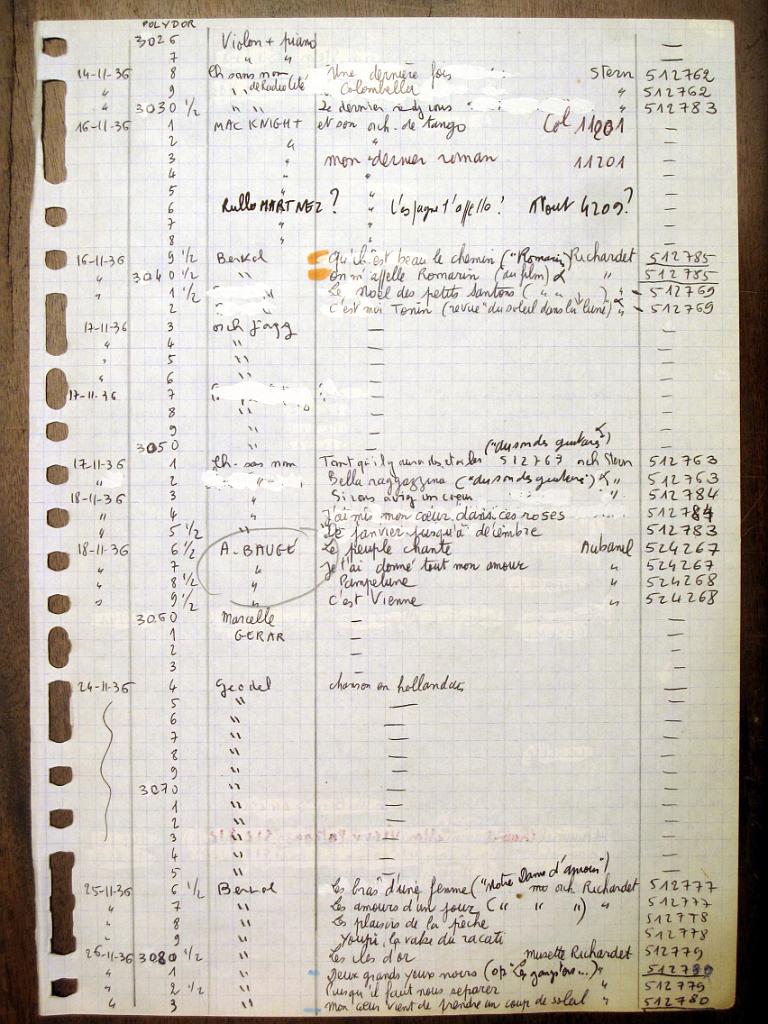 POLYDOR
3026 Violon + piano —
7 " " —
14-11-36 8 Ch sans nom Une dernière fois Stern 512762
" 9 " de Radio Cité Colombella " 512762
" 3030 1/2 " " Le dernier rendez vous " 512783
16-11-36 1 MAC KNIGHT et son orch. de tango Col 11201 —
2 " " —
3 " mon dernier roman 11201 —
4 " " —
5 " " —
6 Rullo MARTNEZ ? " L'espagne l'appelle ! Mout 4209? —
7 " " —
8 " " —
16-11-36 9 1/2 Berkol Qu'il est beau le chemin ("Romarin") Richardet 512785
" 3040 1/2 " on m'appelle Romarin (du film) " 512785
" 1 1/2 " Le Noel des petits santons ( " " ) " 512769
2 " C'est moi Tonin (revue "du soleil dans la lune") " 512769
17-11-36 3 orch Jazz — —
" 4 " — —
" 5 " — —
" 6 " — —
17-11-36 7 —
8 " — —
9 " — —
3050 " — ("du son des guitares") —
17-11-36 1 Ch. sans nom Tant qu'il y aura des étoiles 512763 orch Stern 512763
" 2 " Bella raggazzina ("du son des guitares") " 512763
18-11-36 3 " Si vous aviez un coeur 512784
" 4 " J'ai mis mon coeur dans ces roses 512784
" 5 1/2 " De janvier jusqu'à décembre 512783
18-11-36 6 1/2 A. BAUGÉ Le peuple chante Aubanel 524267
" 7 " Je t'ai donné tout mon amour " 524267
" 8 1/2 " Pampelune " 524268
" 9 1/2 " C'est Vienne " 524268
3060 Marcelle — —
1 GERAR — —
2 — —
3 — —
24-11-36 4 Geodel chanson en hollandais —
5 " — —
6 " — —
7 " — —
8 " — —
9 " — —
3070 " — —
1 " — —
2 " — —
3 " — —
4 " — —
5 " — ("Notre Dame d'amour") —
25-11-36 6 1/2 Berkol Les bras d'une femme orch Richardet 512777
" 7 " Les amours d'un jour ( " " " ) " 512777
" 8 " Les plaisirs de la pêche 512778
" 9 " Youpi, la valse du racati 512778
26-11-36 3080 1/2 " Les iles d'or musette Richardet 512779
" 1 " Deux grands yeux noirs (op " ...) " 512780
" 2 1/2 " Puisqu'il faut nous séparer " 512779
" 3 " mon coeur vient de prendre un coup de soleil " 512780